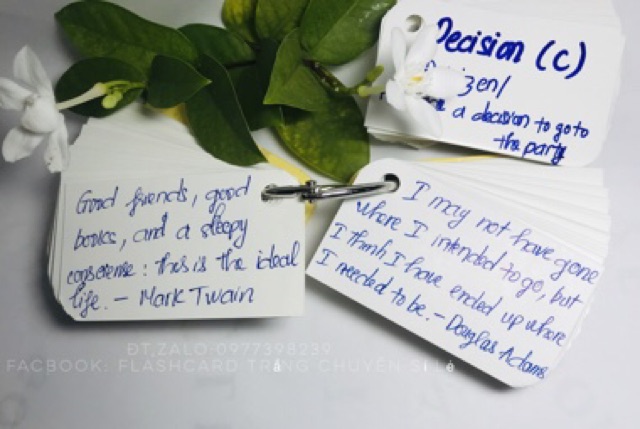 Decision (C)
a decision to go to
the party
Good friends, good
books, and a sleepy
conscience: this is the ideal
life. – Mark Twain
I may not have gone
where I intended to go, but
I think I have ended up where
I needed to be. – Douglas Adams
ĐT,ZALO:0977398239
FACBOOK: FLASHCARD TRẮNG CHUYÊN SỈ LẺ